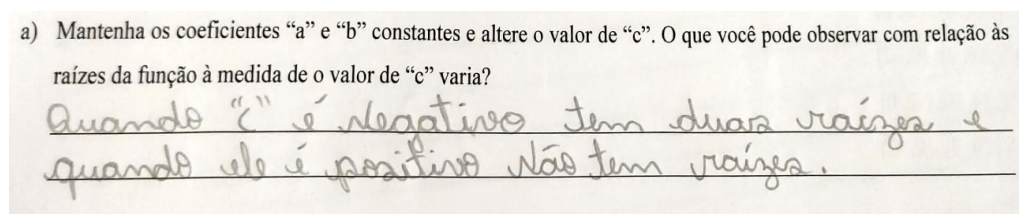 a) Mantenha os coeficientes “a” e “b” constantes e altere o valor de “c”. O que você pode observar com relação às
raízes da função à medida de o valor de “c” varia?
Quando "c" é Negativo tem duas raízes e
quando ele é positivo Não tem raízes.